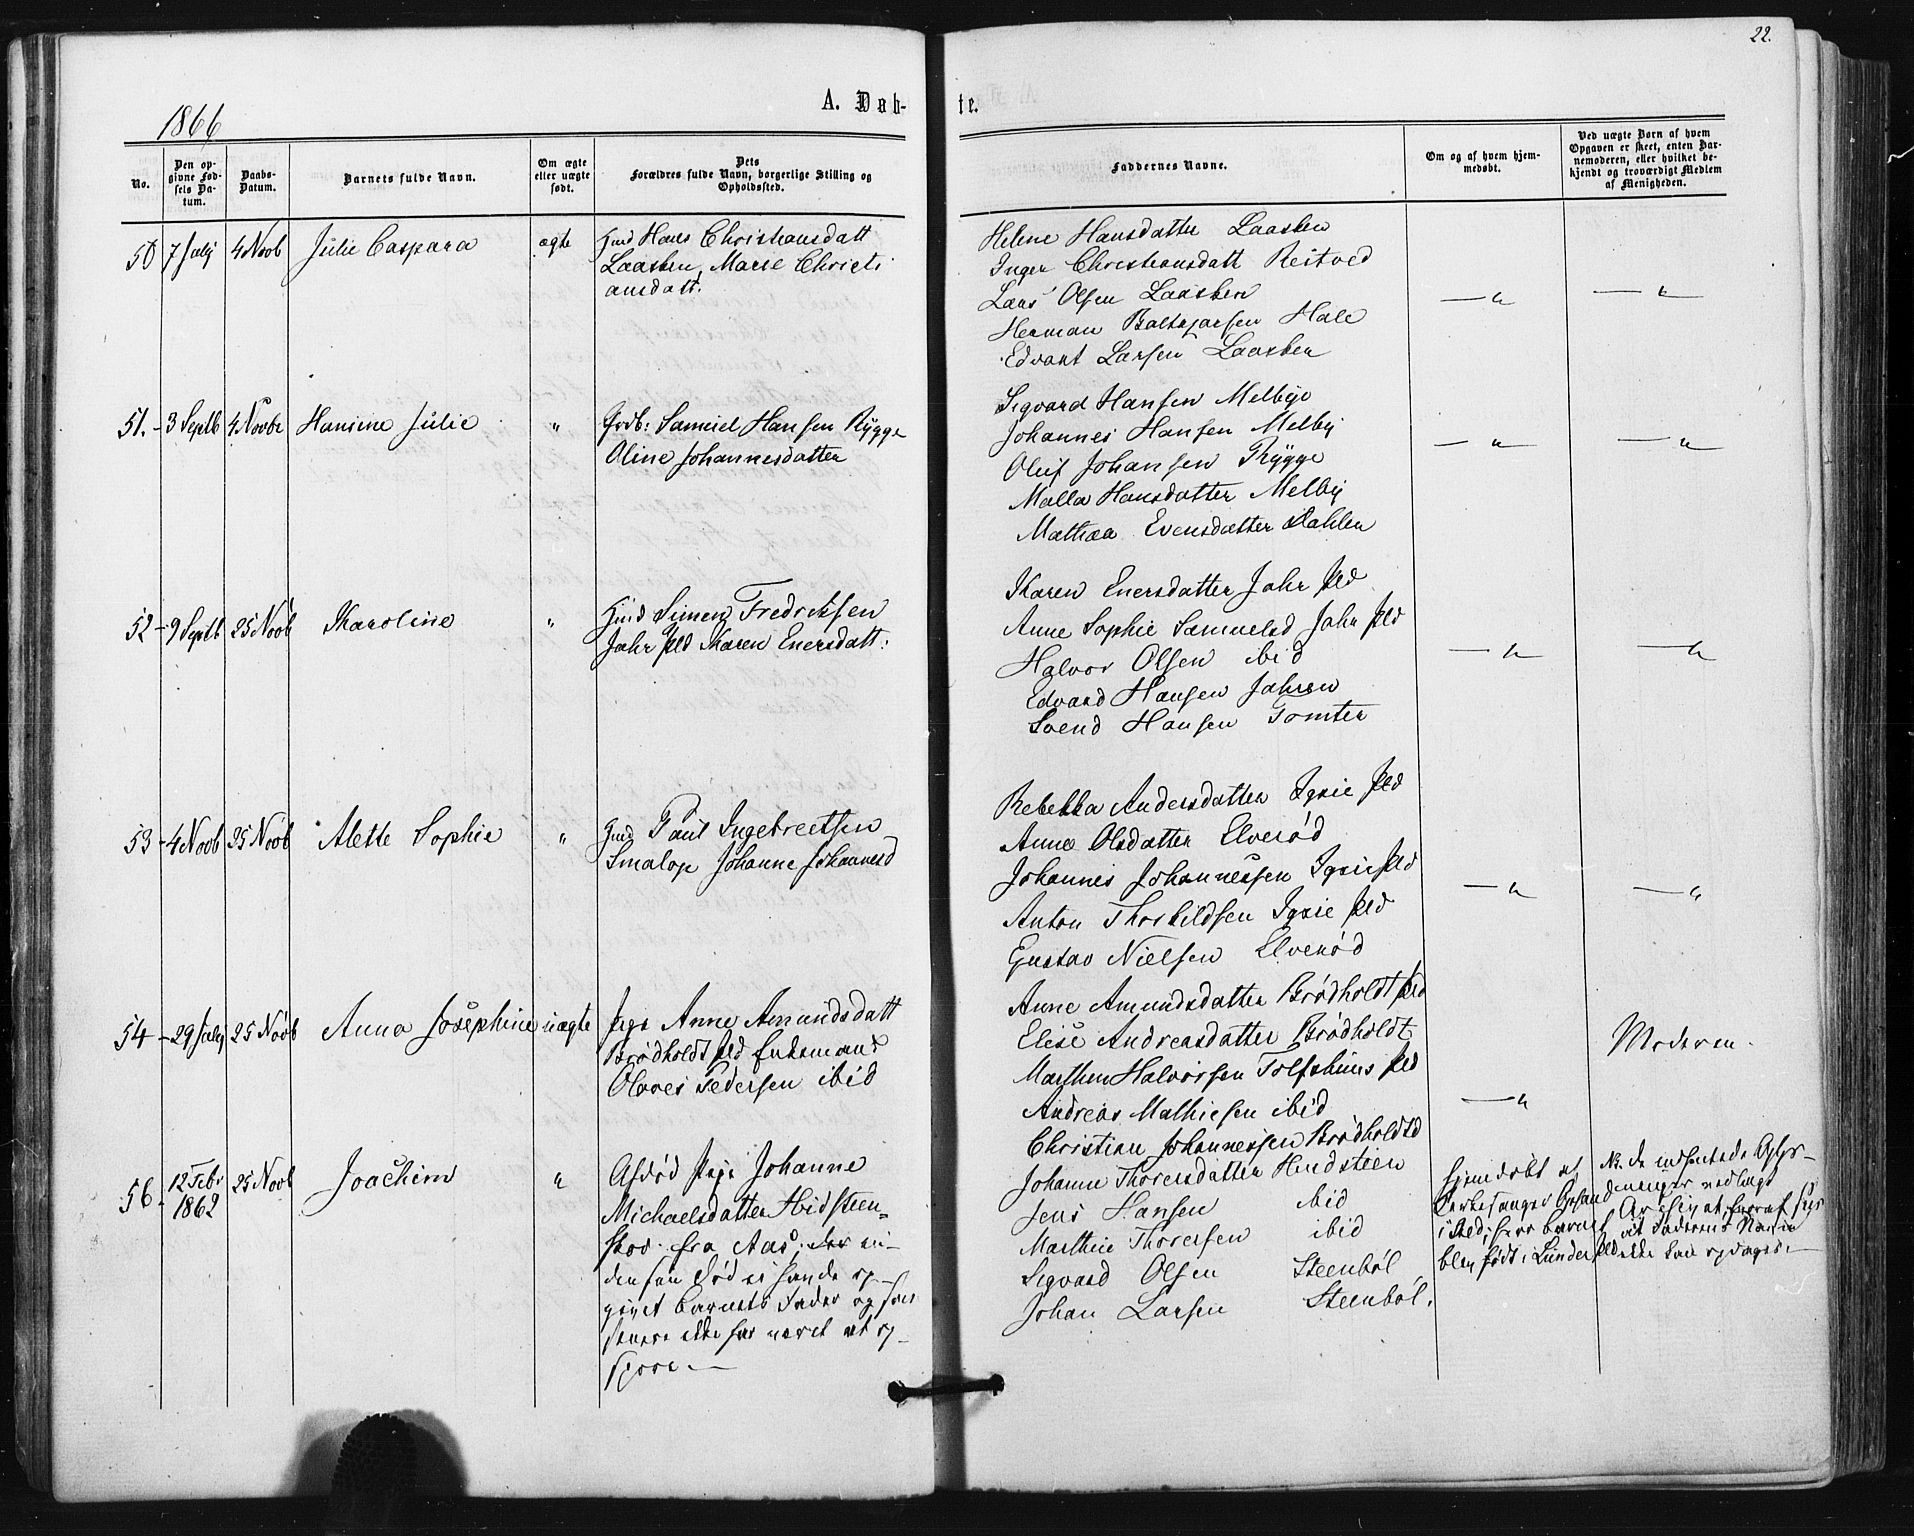 22.
1866
A. Døb-
te.
No.
Den op-
givne Fød-
sels Da-
tum.
Daabs-
Datum.
Barnets fulde Navn.
Om ægte
eller uægte
født.
Dets
Forældres fulde Navn, borgerlige Stilling og
Opholdssted.
Faddernes Navne.
Om og af hvem hjem-
medøbt.
Ved uægte Børn af hvem
Opgaven er skeet, enten Bar-
nemoderen, eller hvilket be-
kjendt og troværdigt Medlem
af Menigheden.
50 7 July 4 Novb Julie Caspara ægte Hans Christiansdatt
Laasken, Marie Christi
ansdatt.
Helene Hansdatter Laasken
Inger Christiansdatt Reitved
Lars Olsen Laasken
Herman Baltzarsen Hale
Edvart Larsen Laasken
— " — "
51. - 3 Septb 4 Novbr Hansine Julie " Grdb: Samuel Hansen Rygge
Oline Johannesdatter
Sigvard Hansen Melbye
Johannes Hansen Melby
Oluf Johansen Rygge
Malla Hansdatter Melby
Mathea Evensdatter Dahlen
— " — "
52 - 9 Septb 25 Novb Karoline " Simen Fredriksen
Jahr pld Karen Enersdatt:
Karen Enersdatter Jahr pld
Anne Sophie Samuelsd Jahr pld
Halvor Olsen ibid
Edvard Hansen Jahren
Svend Hansen Tomter
— " — "
53 - 4 Novb 25 Novb Alette Sophie " Paul Ingebretsen
Smalop Johanne Johannesd
Rebekka Andersdatter Igsie pld
Anne Olsdatter Elverød
Johannes Johannessen Igsie pld
Anton Thorkildsen Igsie pld
Gustav Nielsen Elverød
— " — "
54 - 29 July 25 Novb Anna Josephine uægte Pige Anne Amundsdatt
Brødholdt pld Enkemand
Olaves Pedersen ibid
Anne Amundsdatter Brødholdt pld
Elise Andreasdatter Brødholdt
Marthin Halvorsen Tolfshuus pld
Andreas Mathiesen ibid
Christian Johannessen Brødholdtd
— "
Moderen.
56 - 12 Febr
1862
25 Novb Joachim " Afdød Pige Johanne
Michaelsdatter Hidsteen-
skov fra Aas, der si-
den sin Død ei havde op-
givet Barnets Fader og som
senere ikke har været at op-
spore. —
Johanne Thoversdatter Hindsteen
Jens Hansen ibid
Marthin Thoversen ibid
Sigvard Olsen Steenbøl
Johan Larsen Steenbøl.
hjemdøbt af
Kirkesanger
i Sted, hvor barnet
blev født i Lunder pld
No. de indhentede Oplys-
ninger nedlagt
i Archivet, hvoraf sees
at Faderens Navn
ikke kan opdages. —